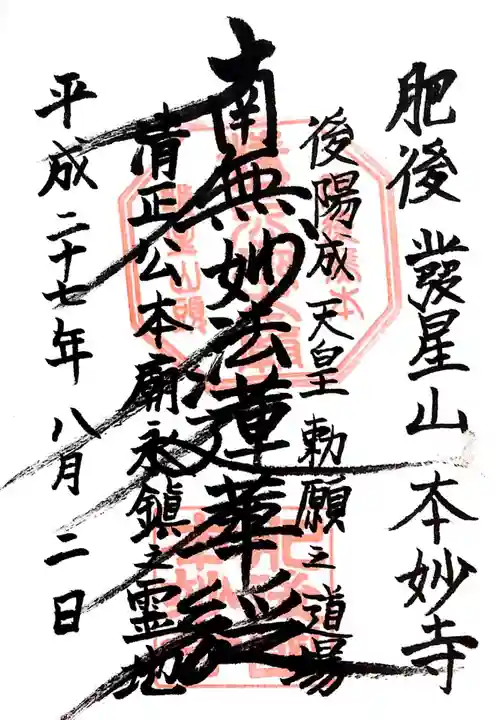 肥後 發星山 本妙寺
後陽成 天皇 勅願之道場
南無妙法蓮華経
清正公本廟永鎮之霊地
平成二十七年 八月 二日